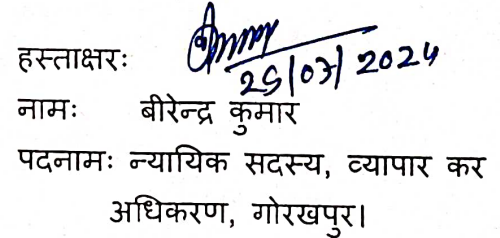 हस्ताक्षरः
25/07/2024
नामः बीरेन्द्र कुमार
पदनामः न्यायिक सदस्य, व्यापार कर
अधिकरण, गोरखपुर।